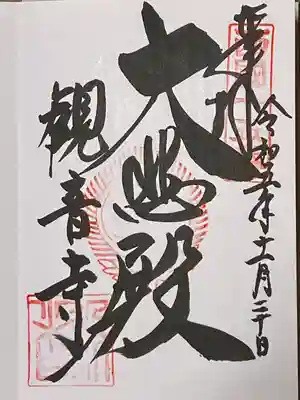 奉拝
令和五年十一月二十日
大悲殿
観音寺